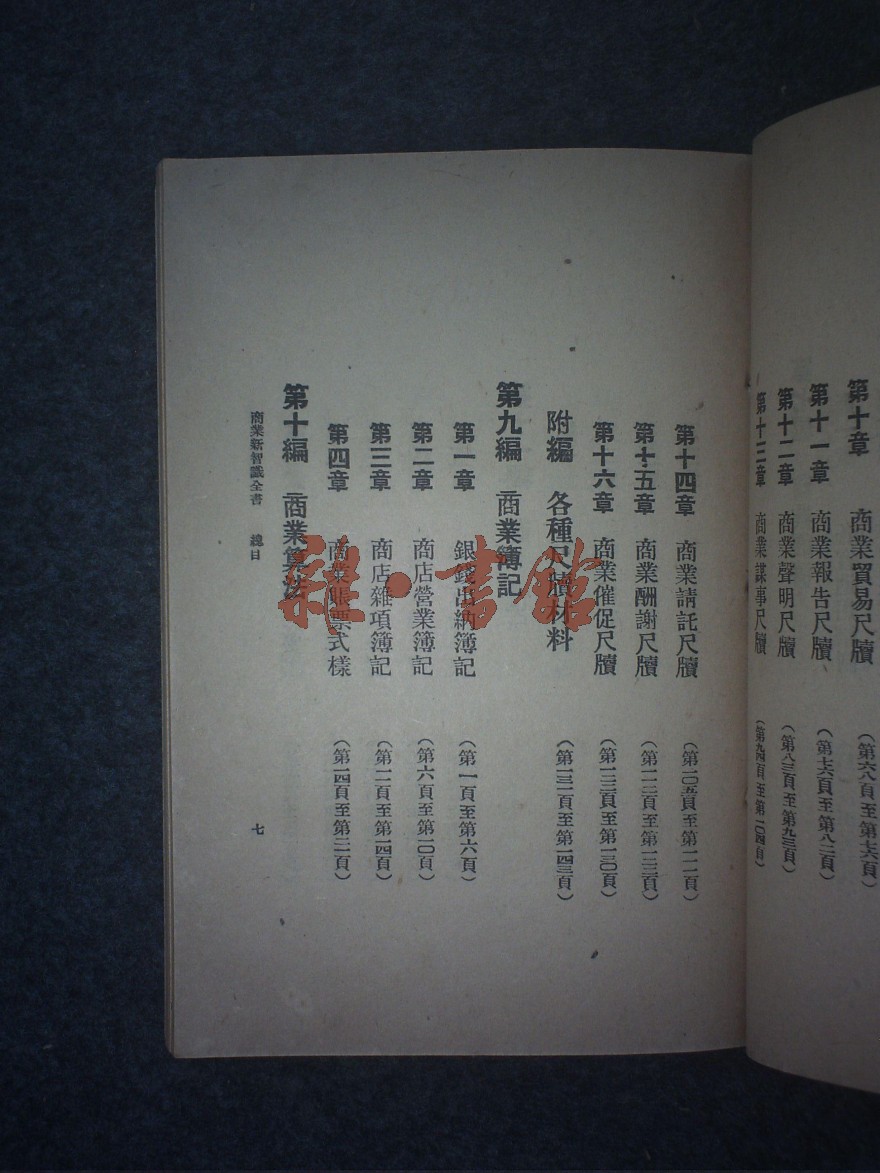 第十章　商業貿易尺牘　（第六八頁至第七六頁）
第十一章　商業報告尺牘　（第七六頁至第八二頁）
第十二章　商業聲明尺牘　（第八三頁至第九三頁）
第十三章　商業謀事尺牘　（第九四頁至第一〇四頁）
第十四章　商業請託尺牘　（第一〇五頁至第一一一頁）
第十五章　商業酬謝尺牘　（第一一二頁至第一二二頁）
第十六章　商業催促尺牘　（第一二三頁至第一三〇頁）
附編　各種尺牘材料　（第一三一頁至第一四三頁）
第九編　商業簿記
第一章　銀錢出納簿記　（第一頁至第六頁）
第二章　商店營業簿記　（第六頁至第一〇頁）
第三章　商店雜項簿記　（第一一頁至第一四頁）
第四章　商業賬票式樣　（第一四頁至第二一頁）
第十編　商業算法
商業新智識全書　總目　七
雜·書館